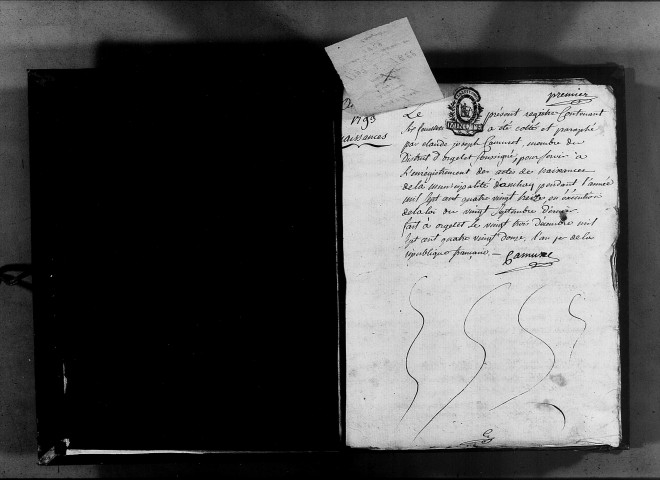 premier
1793
naissances
Le présent registre Contenant
six feuillets a été cotté et paraphé
par claude joseph Camuset, membre du
District d'orgelet soussigné, pour servir à
l'enregistrement des actes de naissances
de la municipalité pendant l'année
mil sept cent quatre vingt treize en éxécution
de la loi du vingt septembre dernier
fait à orgelet le vingt trois décembre mil
sept cent quatre vingt douze, l'an 1er de la
république française. —
Camuset